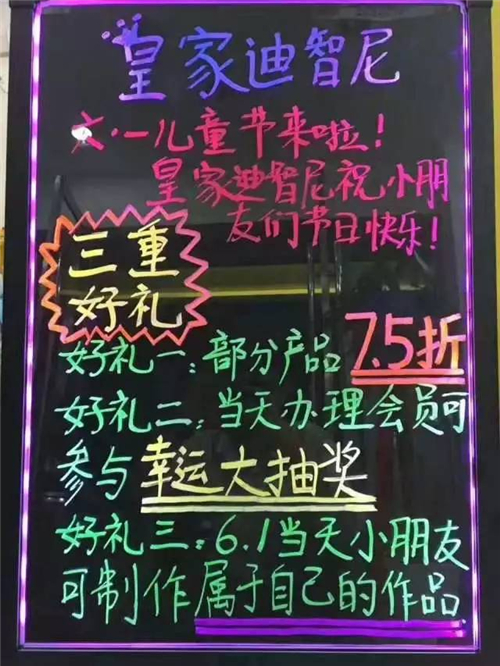 皇家迪智尼
六·一儿童节来啦！
皇家迪智尼祝小朋
友们节日快乐！
三重
好礼
好礼一：部分产品7.5折
好礼二：当天办理会员可
参与幸运大抽奖
好礼三：6.1当天小朋友
可制作属于自己的作品